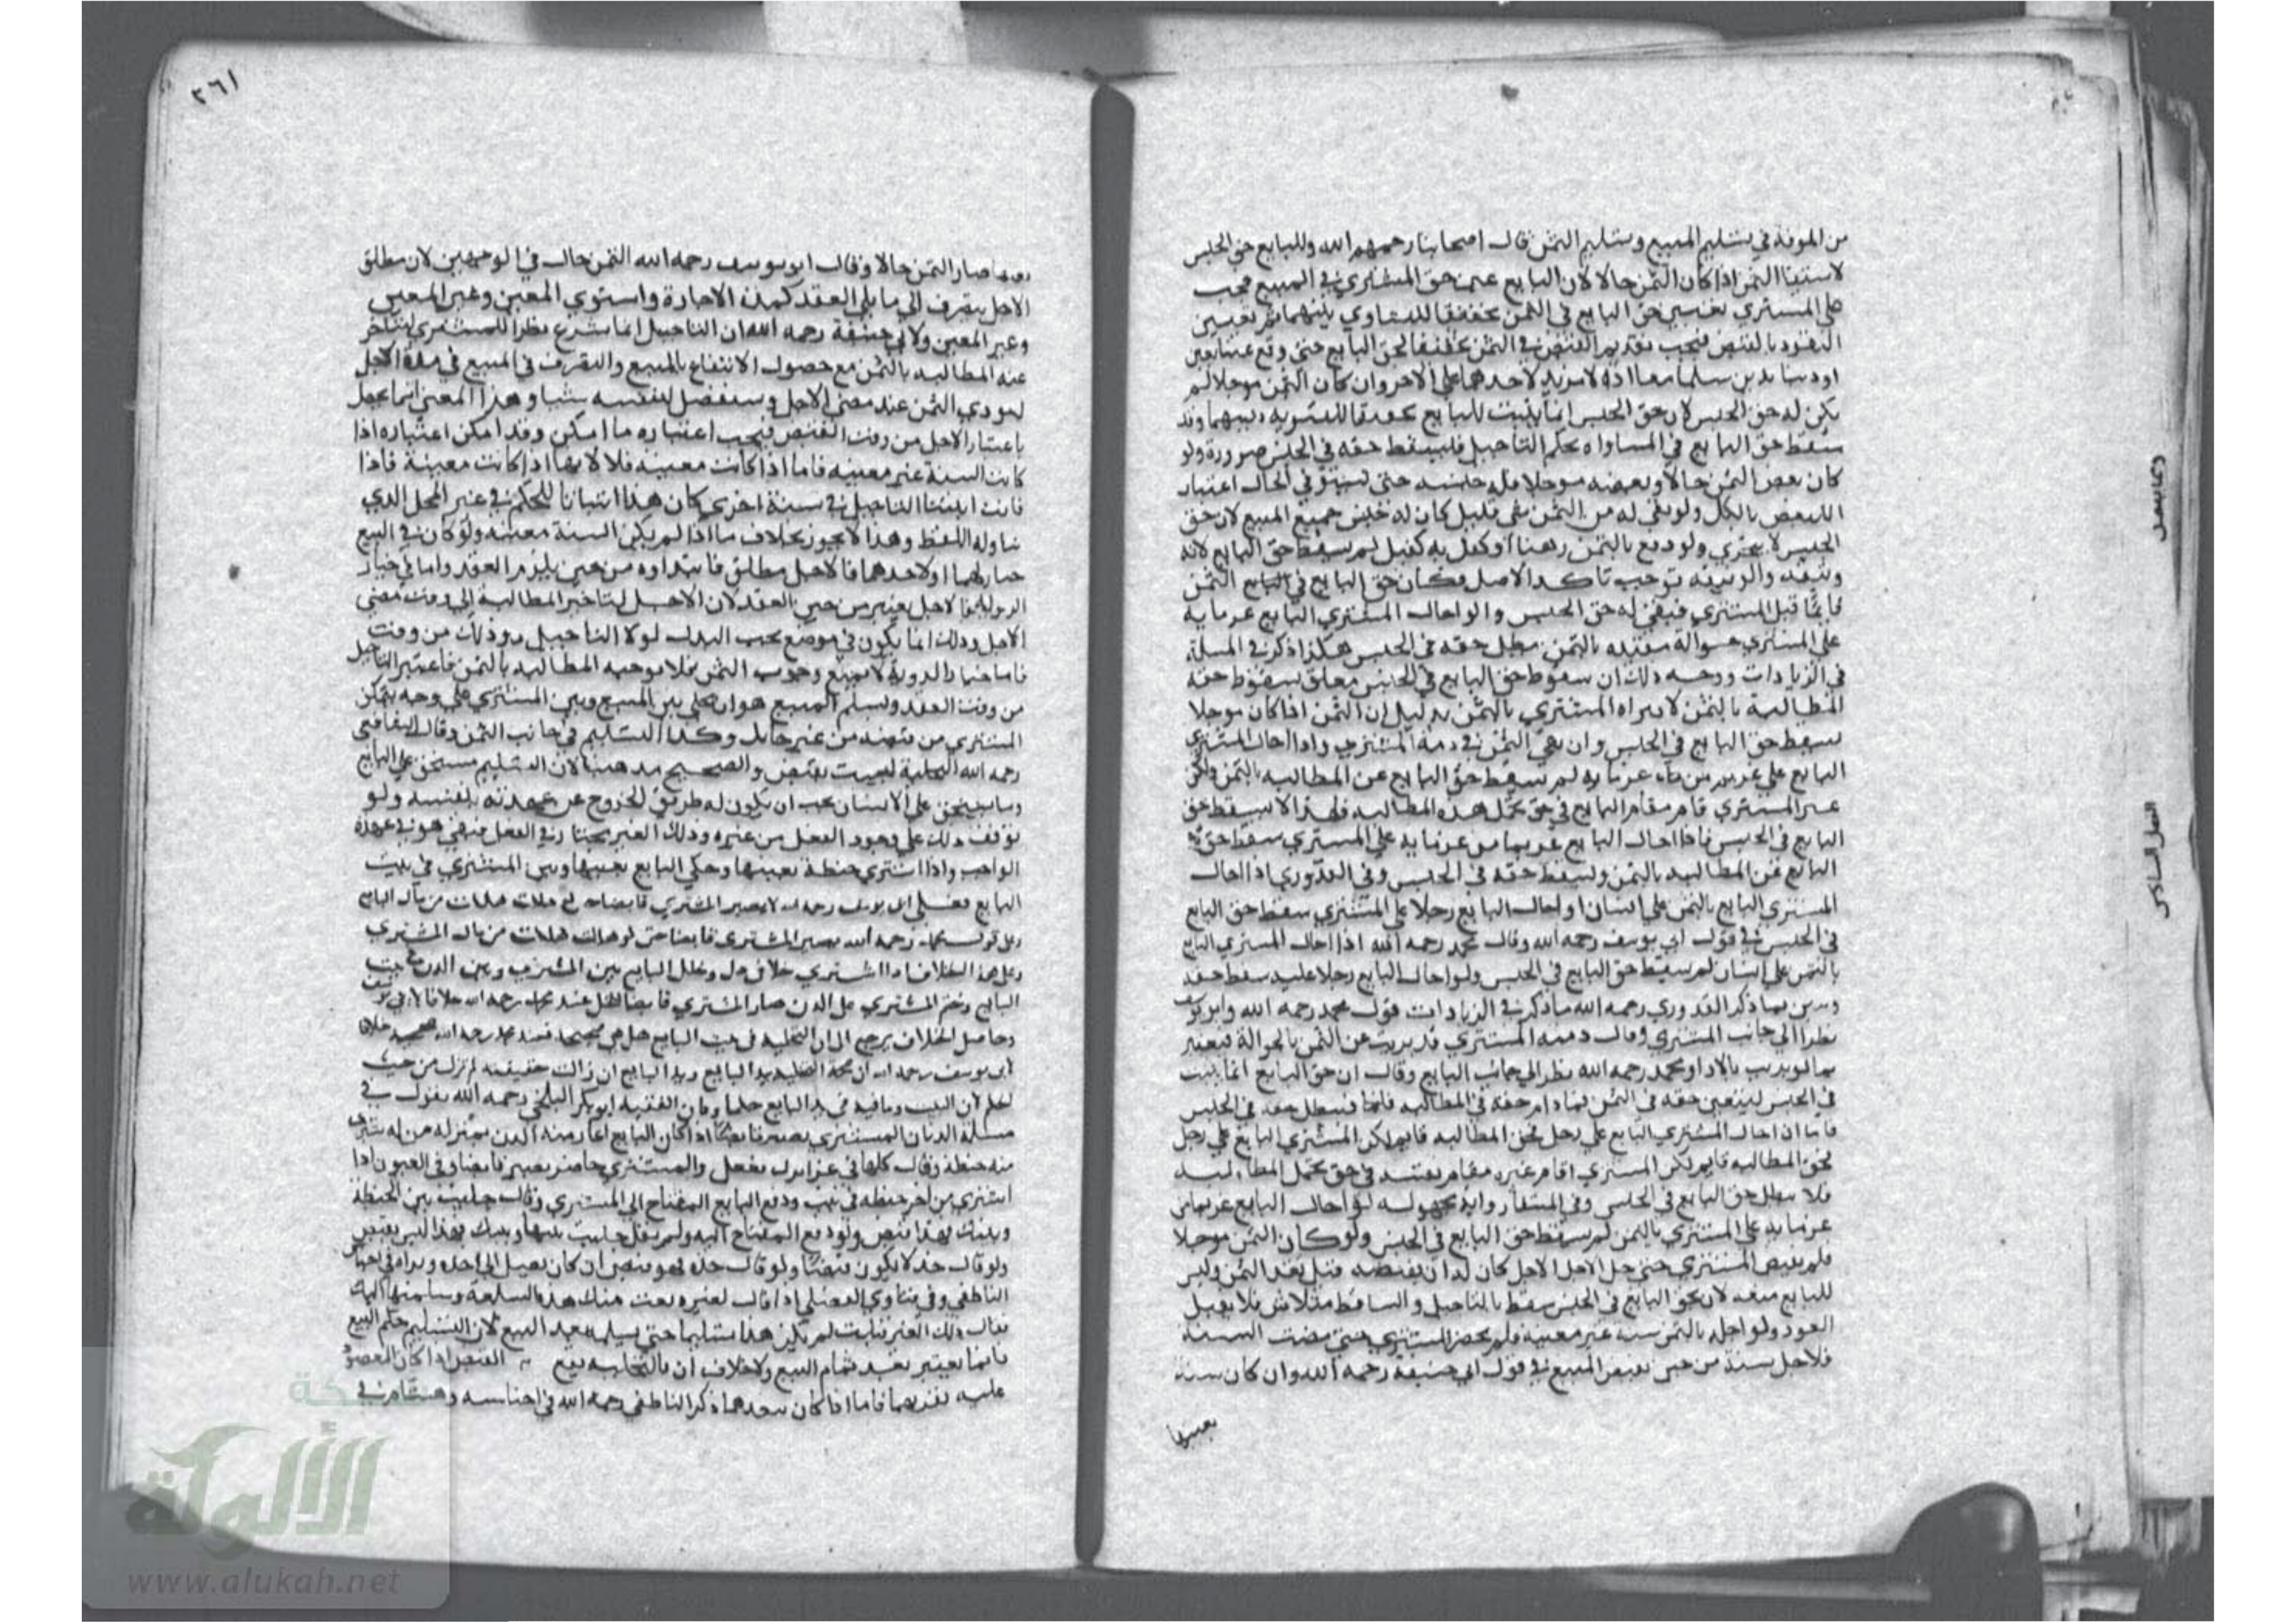 من الموفة في تسليم المبيع وتسليم الثمن قال اصحابنا رحمهم الله وللبايع حق الحبس
لاستيفا الثمن اذا كان الثمن حالا لان البايع عين حق المشتري في المبيع فيجب
على المشتري تعيين حق البايع في الثمن تحقيقا للتساوي بينهما ثم تعيين
النقود بالقبض فيجب تقديم القبض في الثمن تحقيقا لحق البايع حتى لو وقع عينا بعين
او دينا بدين سلما معا اذ لا مزية لاحدهما على الاخر وان كان الثمن موجلا لم
يكن له حق الحبس لان حق الحبس انما يثبت للبايع تحقيقا للتسوية بينهما وقد
سقط حق البايع في المساواه بحكم التاجيل فليسقط حقه في الحبس ضرورة ولو
كان بعض الثمن حالا وبعضه موجلا فله حبسه حتى يستوفي الحال اعتبار
للبعض بالكل ولو بقي له من الثمن شي قليل كان له حبس جميع المبيع لان حق
الحبس لا يتجزي ولو دفع بالثمن رهنا او كفل به كفيل لم يسقط حق البايع لانه
وثيقه والوثيقه توجب تاكد الاصل فكان حق البايع في الثمن
قايما قبل المشتري فيبقى له حق الحبس والو احال المشتري البايع غرمايه
على المشتري حوالة مقيده بالثمن بطل حقه في الحبس هكذا ذكر في المسلة
في الزيادات ووجه ذلك ان سقوط حق البايع في الحبس معلق بسقوط حقه
المطالبة بالثمن لا ببراه المشتري بالثمن بدليل ان الثمن اذا كان موجلا
يسقط حق البايع في الحبس وان بقي الثمن في ذمة المشتري واذا احال المشتري
البايع على غريم من غرمايه لم يسقط حق البايع عن المطالبه بالثمن ولكن
غير المشتري قام مقام البايع في حق تحمل هذه المطالبه فلهذا لا يسقط حق
البايع في الحبس فاذا احال البايع غريما من غرمايه على المشتري سقط حق
البايع عن المطالبه بالثمن وليسقط حقه في الحبس وفي القدوري اذا احال
المشتري البايع بالثمن على انسان او احال البايع رجلا على المشتري سقط حق البايع
في الحبس في قول ابي يوسف رحمه الله وقال محمد رحمه الله اذا احال المشتري البايع
بالثمن على انسان لم يسقط حق البايع في الحبس ولو احال البايع رجلا عليه سقط حقه
وتبين بما ذكر القدوري رحمه الله ما ذكر في الزيادات قول محمد رحمه الله وابو يوسف
نظر الى جانب المشتري وقال ذمة المشتري قد بريت عن الثمن بالحوالة فيعتبر
بما لو بريت بالادا ومحمد رحمه الله نظر الى جانب البايع وقال ان حق البايع انما يثبت
في الحبس ليتعين حقه في الثمن فما دام حقه في المطالبه قايما فيبطل حقه في الحبس
فاما اذا احال المشتري البايع على رجل فحق المطالبه قايم لكن المشتري البايع على رجل
فحق المطالبه قايم لكن المشتري اقام غيره مقام نفسه في حق تحمل المطالبه
فلا يبطل حق البايع في الحبس وفي المنتقا رواية مجهوله لو احال البايع غريما من
غرمايه على المشتري بالثمن لم يسقط حق البايع في الحبس ولو كان الثمن موجلا
فلم يقبض المشتري حتى حل الاجل كان له ان يقبضه قبل نقد الثمن وليس
للبايع منعه لان حق البايع في الحبس سقط بالتاجيل والساقط متلاش فلا يقبل
العود ولو اجله بالثمن سنه غير معينة فلم يحضر المشتري حتى مضت السنة
فلاجل سنة من حين يقبض المبيع في قول ابي حنيفة رحمه الله وان كان سنة
بعينها
دعا بعض
الفصل السادس
٢٦١
صار الثمن حالا وقال ابو يوسف رحمه الله الثمن حال في الوجهين لان مطلق
الاجل ينصرف الى ما يلي العقد كمدة الاجارة واستوي المعين وغير المعين
وغير المعين ولابي حنيفة رحمه الله ان التاجيل انما يشرع نظرا للمشتري ليتاخر
عنه المطالبه بالثمن مع حصول الانتفاع بالمبيع والتصرف في المبيع في مدة الاجل
ليودي الثمن عند مضي الاجل ويستفضل لنفسه شيا وهذا المعنى انما يحصل
باعتبار الاجل من وقت القبض فيجب اعتباره ما امكن وقد امكن اعتباره اذا
كانت السنة غير معينه فاما اذا كانت معينه فلا لانها اذا كانت معينة فاذا
فاتت اثبتنا التاجيل في سنة اخري كان هذا اثباتا للحكم في غير المحل الذي
تناوله اللفظ وهذا لا يجوز بخلاف ما اذا لم يكن السنة معينه ولو كان في البيع
خيار لهما او لاحدهما فالاجل مطلق فابتداوه من حين يلزم العقد واما في خيار
الروية فالاجل يعتبر من حين العقد لان الاجل لتاخير المطالبة الى وقت مضي
الاجل وذلك انما يكون في موضع يجب البدل لولا التاجيل وذلك من وقت
فاما خيار الروية لا يمنع وجوب الثمن فلا يوجب المطالبه بالثمن فاعتبر التاجيل
من وقت العقد وتسليم المبيع هو ان يخلي بين المبيع وبين المشتري على وجه يتمكن
المشتري من قبضه من غير حايل وكذا التسليم في جانب الثمن وقال الشافعي
رحمه الله التخلية ليست بقبض والصحيح مذهبنا لان التسليم مستحق على البايع
وما يستحق على الانسان يجب ان يكون له طريق الخروج عن عهدته بنفسه ولو
توقف ذلك على وجود الفعل من غيره وذلك الغير مختار في الفعل فبقي هو في عهدة
الواجب واذا اشتري حنطة بعينها وخلي البايع بينها وبين المشتري في بيت
البايع فعلى قول ابي يوسف رحمه الله لا يصير المشتري قابضا حتى لو هلك هلك من مال البايع
وعلى قول محمد رحمه الله يصير المشتري قابضا حتى لو هلك هلك من مال المشتري
وعلى هذا الخلاف اذا اشتري خلا في دن وخلى البايع بين المشتري وبين الدن في بيت
البايع وختم المشتري على الدن صار المشتري قابضا للخل عند محمد رحمه الله خلافا لابي يوسف
وحاصل الخلاف يرجع الى ان التخلية في بيت البايع هل هي صحيحة فعند محمد رحمه الله صحيحه خلاف
ابي يوسف رحمه الله ان صحة التخلية بيد البايع ويد البايع ان زالت حقيقته لم تزل من حيث
الحكم لان البيت وما فيه في يد البايع حكما وكان الفقيه ابو بكر البلخي رحمه الله يقول في
مسلة الدن ان المشتري يصير قابضا اذا كان البايع اعار منه الدن بمنزله من له شترى
منه حنطة وقال كلها في غرايرك ففعل والمشتري حاضر يصير قابضا وفي العيون اذا
اشتري من اخر حنطه في بيت ودفع البايع المفتاح الى المشتري وقال خليت بين الحنطة
وبينك فهذا قبض ولو دفع المفتاح اليه ولم يقل خليت بينها وبينك فهذا ليس بقبض
ولو قال خذ لا يكون قبضا ولو قال خذه فهو قبض ان كان يصل الى اخذه ويراه في اجناس
الناطفي وفي فتاوي الفضلي اذا قال لغيره بعت منك هذه السلعة وسلمتها اليك
فقال ذلك الغير قبلت لم يكن هذا تسليما حتى يسلمه بعد البيع لان التسليم حكم البيع
فانما يعتبر بعد تمام البيع ولا خلاف ان بالتخلية يقع القبض اذا كان المعقود
عليه بقربهما فاما اذا كان ببعدهما ذكر الناطفي رحمه الله في اجناسه
الألوكة
www.alukah.net